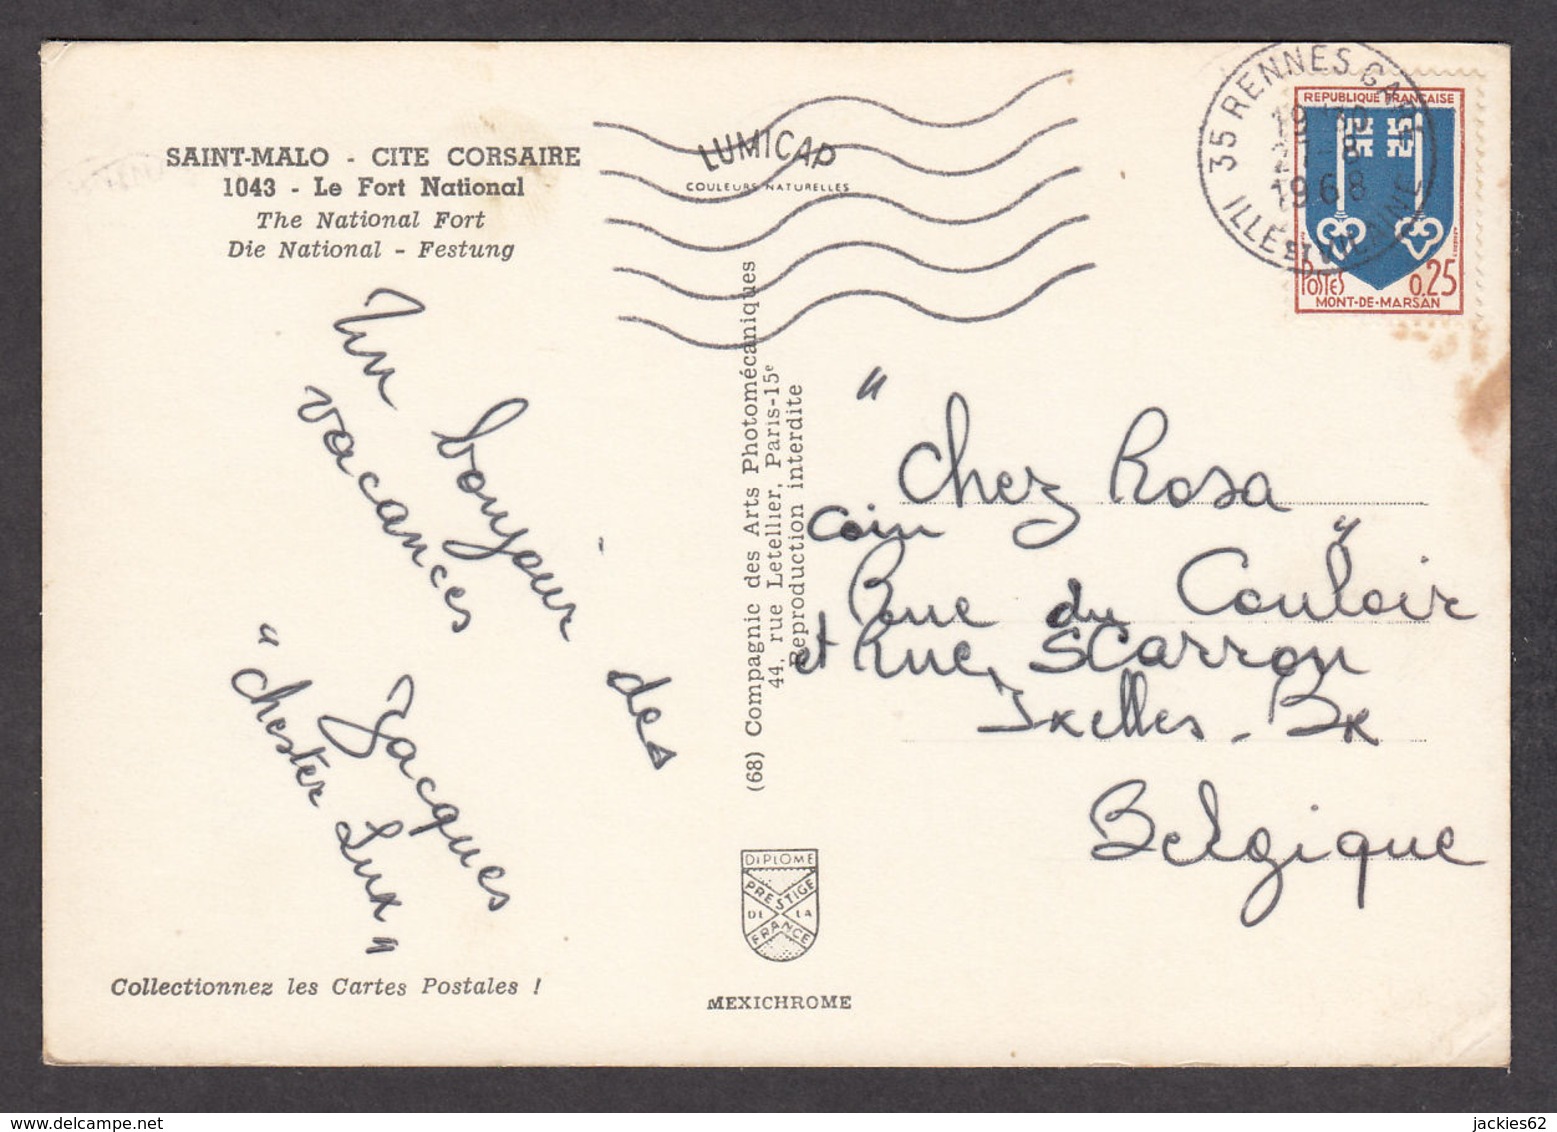 SAINT-MALO - CITE CORSAIRE
1043 - Le Fort National
The National Fort
Die National - Festung
LUMICAP
COULEURS NATURELLES
35 RENNES GARE
1968
ILLE ET VILAINE
REPUBLIQUE FRANCAISE
POSTES 0,25
MONT-DE-MARSAN
Un bonjour des
vacances
Jacques
"Chester Lux"
(68) Compagnie des Arts Photomécaniques
44, rue Letellier, Paris-15e
Reproduction interdite
"Chez Rosa"
coin
Rue du Couloir
et Rue Scarron
Ixelles - Bx
Belgique
DIPLOME
PRESTIGE
DE LA
FRANCE
MEXICHROME
Collectionnez les Cartes Postales !
jackies62